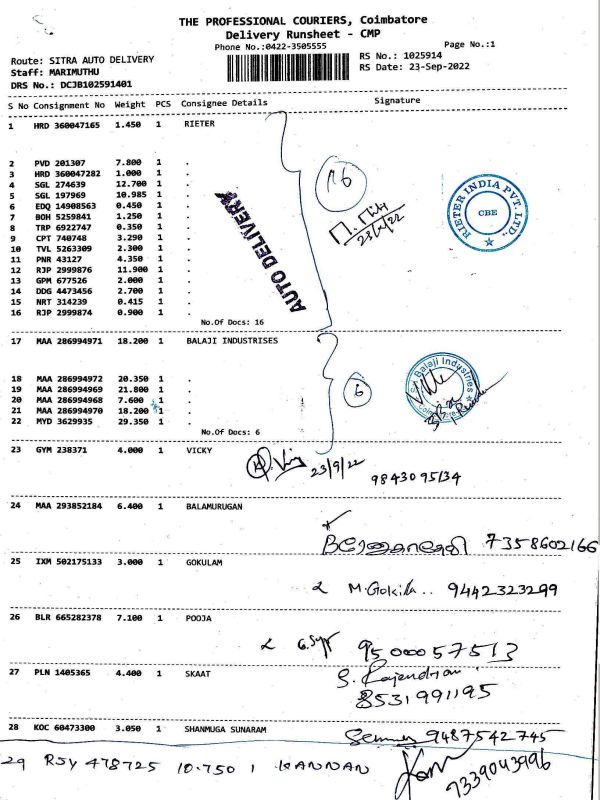 THE PROFESSIONAL COURIERS, Coimbatore
Delivery Runsheet - CMP
Phone No.:0422-3505555
Page No.:1
Route: SITRA AUTO DELIVERY
RS No.: 1025914
Staff: MARIMUTHU
RS Date: 23-Sep-2022
DRS No.: DCJB102591401
S No Consignment No Weight PCS Consignee Details Signature
1 HRD 360047165 1.450 1 RIETER
2 PVD 201307 7.800 1 .
3 HRD 360047282 1.000 1 .
4 SGL 274639 12.700 1 .
5 SGL 197969 10.985 1 .
6 EDQ 14908563 0.450 1 .
7 BOH 5259841 1.250 1 .
8 TRP 6922747 0.350 1 .
9 CPT 740748 3.290 1 .
10 TVL 5263309 2.300 1 .
11 PNR 43127 4.350 1 .
12 RJP 2999876 11.900 1 .
13 GPM 677526 2.000 1 .
14 DDG 4473456 2.700 1 .
15 NRT 314239 0.415 1 .
16 RJP 2999874 0.900 1 .
No.Of Docs: 16
AUTO DELIVERY
16
23/9/22
RIETER INDIA PVT. LTD.,
CBE
17 MAA 286994971 18.200 1 BALAJI INDUSTRISES
18 MAA 286994972 20.350 1 .
19 MAA 286994969 21.800 1 .
20 MAA 286994968 7.600 1 .
21 MAA 286994970 18.200 1 .
22 MYD 3629935 29.350 1 .
No.Of Docs: 6
6
Balaji Industries
23 GYM 238371 4.000 1 VICKY
23/9/22
9843095134
24 MAA 293852184 6.400 1 BALAMURUGAN
7358602166
25 IXM 502175133 3.000 1 GOKULAM
M.Gokila.. 9442323299
26 BLR 665282378 7.100 1 POOJA
9500057513
27 PLN 1405365 4.400 1 SKAAT
S. Rajendran
8531991195
28 KOC 60473300 3.050 1 SHANMUGA SUNARAM
9487542745
29 RSY 478725 10.750 1 KANNAN
7339043996